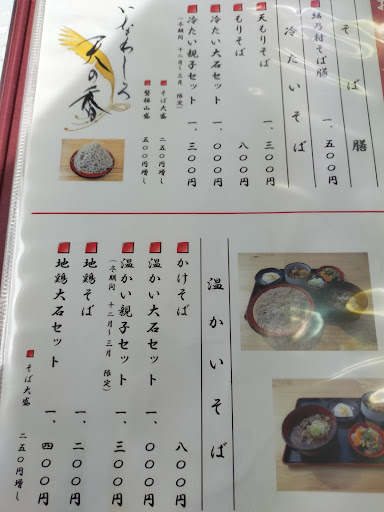 そば膳
一、五〇〇円
冷たいそば
天もりそば 一、三〇〇円
もりそば 八〇〇円
冷たい大石セット 一、〇〇〇円
冷たい親子セット 一、三〇〇円
（冬期間 十二月～三月 限定）
そば大盛 二五〇円増し
磐梯山盛 五〇〇円増し
いなわしろ
天の香
温かいそば
かけそば 八〇〇円
温かい大石セット 一、〇〇〇円
温かい親子セット 一、三〇〇円
（冬期間 十二月～三月 限定）
地鶏そば 一、二〇〇円
地鶏大石セット 一、四〇〇円
そば大盛 二五〇円増し